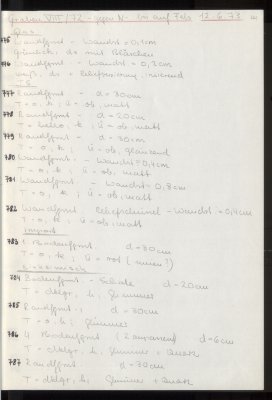 Graben VIII/72 - gegen N - bis auf Fels 12.6.73
Glas:
775 Wandfgmt - Wandst = 0,1cm
776 Wandfgmt - Wandst = 0,2cm
T.S.
777 Randfgmt - d = 30cm
T = o, k, ü = ob, matt
778 Randfgmt - d = 20cm
ü = ob, matt
779 Randfgmt - d = 30cm
T = o, k; ü = ob, glänzend
780 Wandfgmt - Wandst = 0,4cm
T = o, k, ü = ob, matt
781 Wandfgmt - Wandst = 0,8cm
T = o, k, ü = ob, matt
782 Wandfgmt, Reliefschüssel - Wandst = 0,4cm
T = o, k; ü = ob, matt
import
783 1 Bodenfgmt d = 30cm
T = o, k; ü = rot (innen?)
784 Bodenfgmt - Schale d = 20cm
T = dklgr, h, Glimmer
785 Randfgmt d = 30cm
T = o, h; Glimmer
786 4 Bodenfgmt (2 anpassend) d = 6cm
T = dklgr, h, Glimmer + Quarz
787 Randfgmt d = 30cm
T = dklgr, h, Glimmer + Quarz